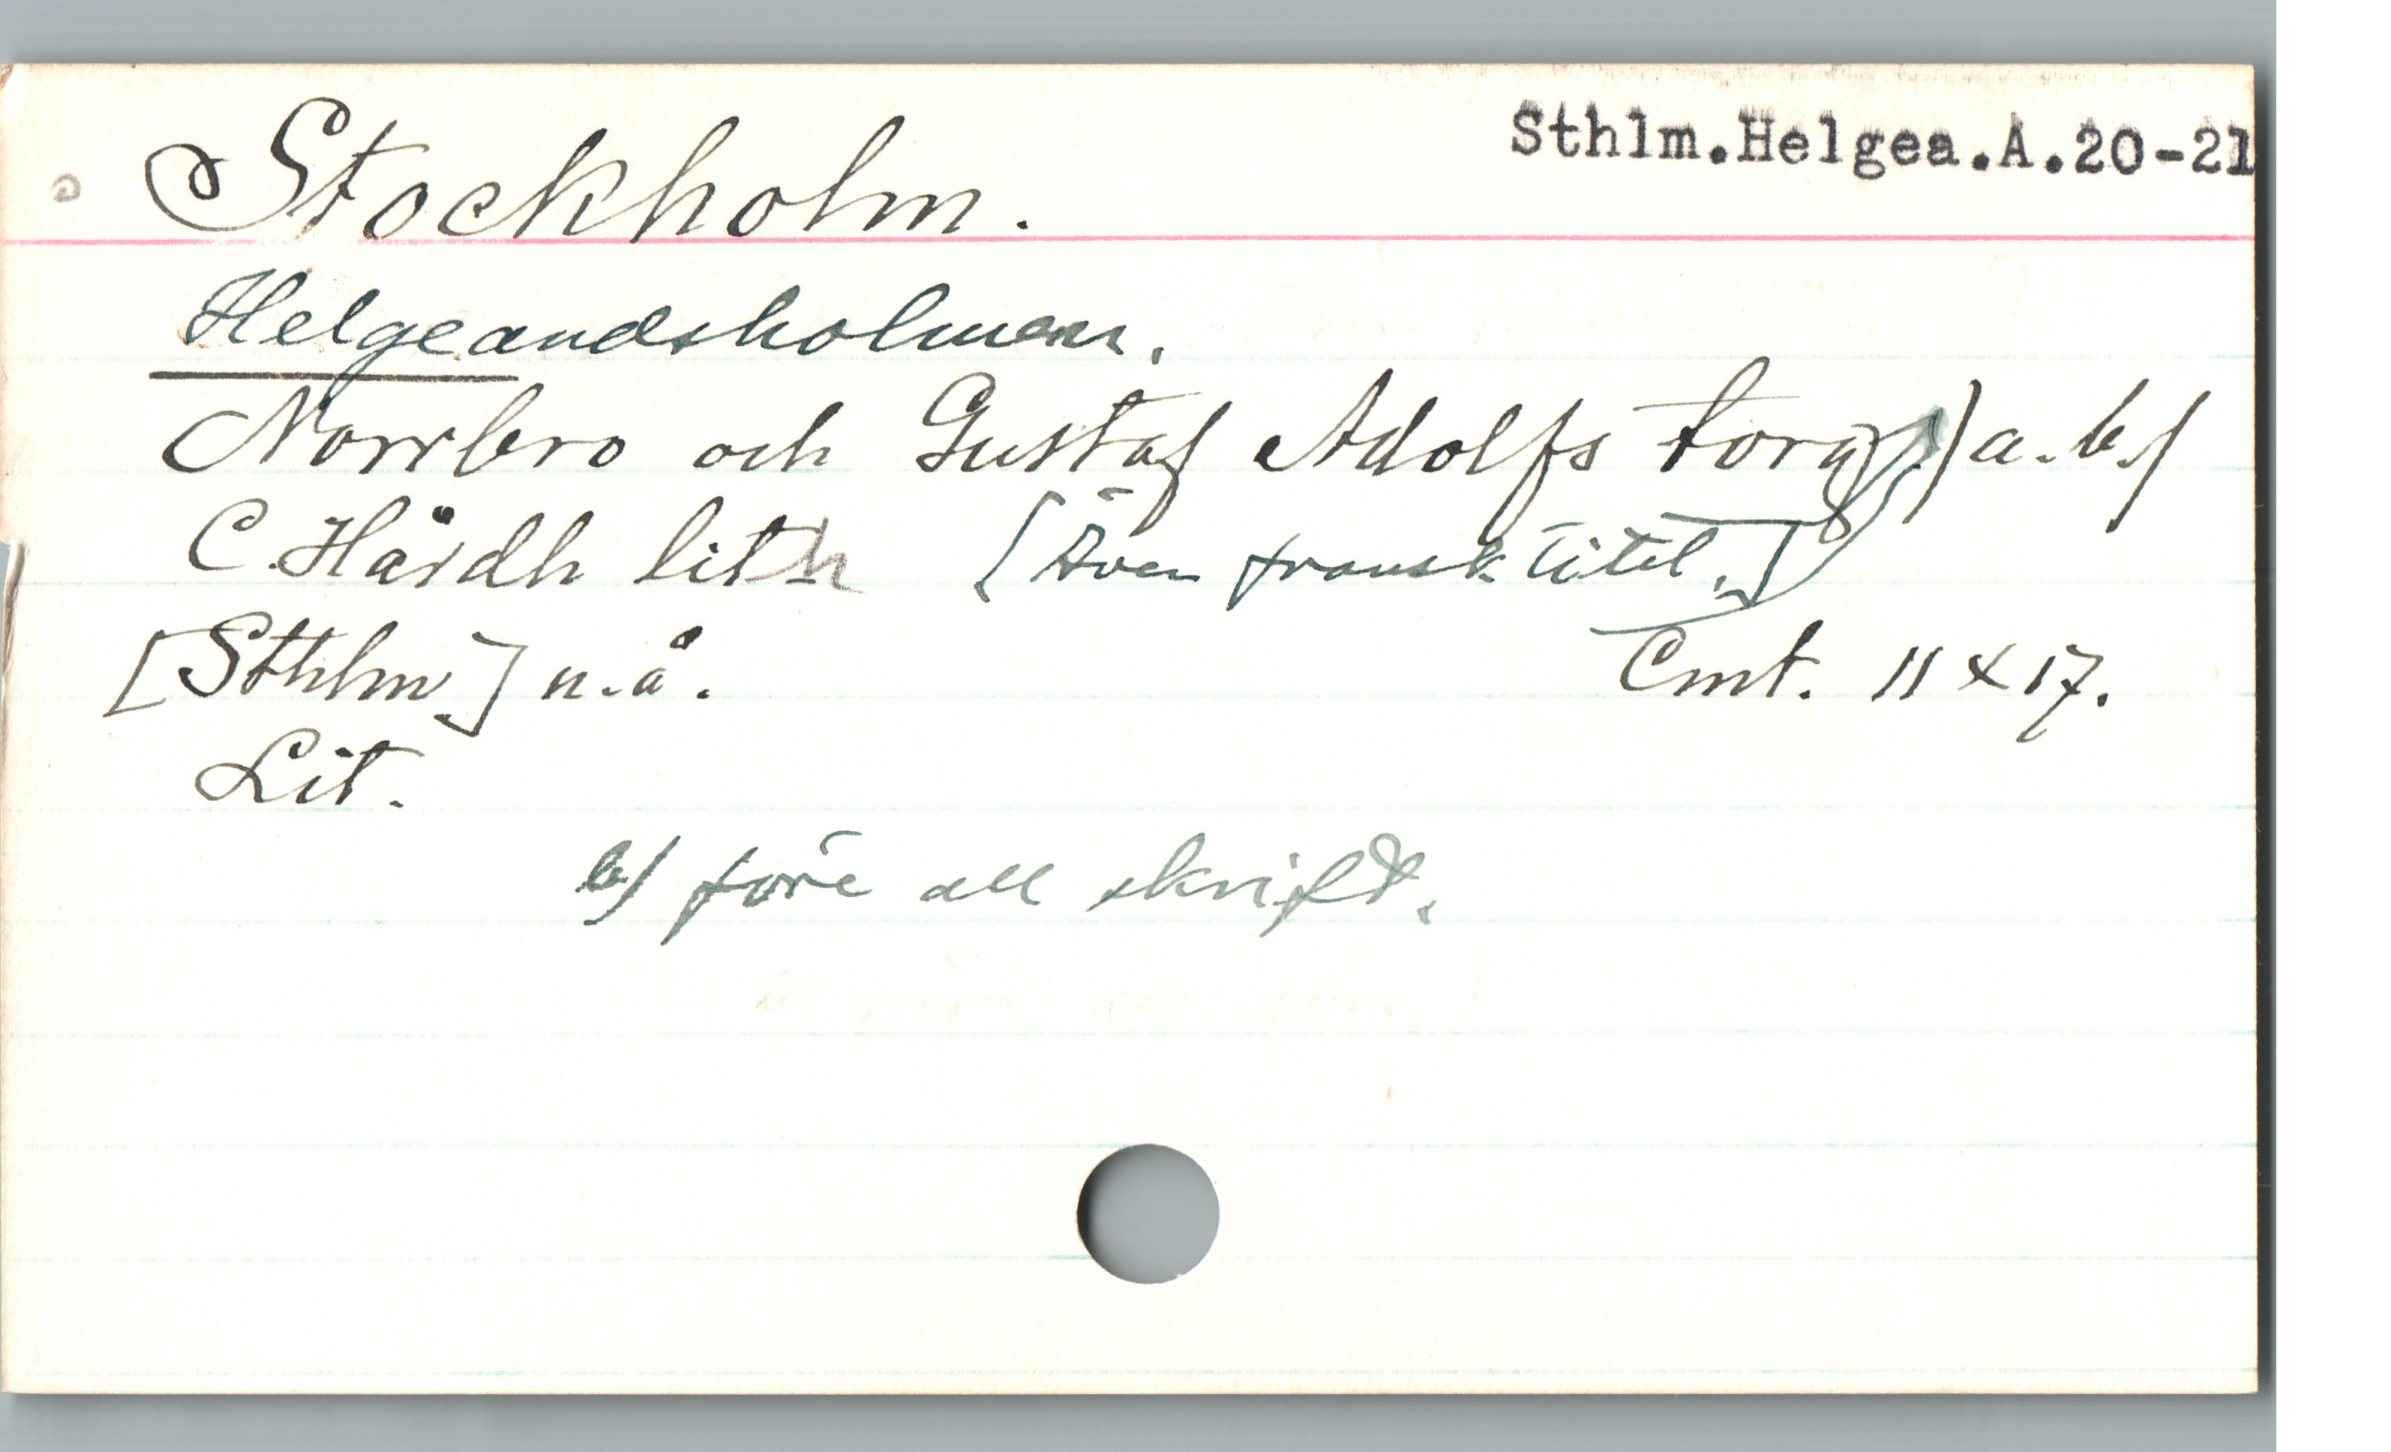 Sthlm.Helgea.A.20-21
Stockholm.
Helgeandsholmen.
Norrbro och Gustaf Adolfs torg) a. b./
C. Hårdh lith [Även fransk titel.]
[Sthlm.] n.å. Cmt. 11 x 17.
Lit.
b/ före all skrift.